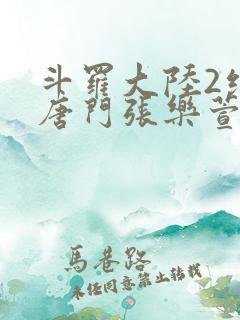 斗羅大陸2
唐門張樂萱
馬巷路
未經同意禁止轉載